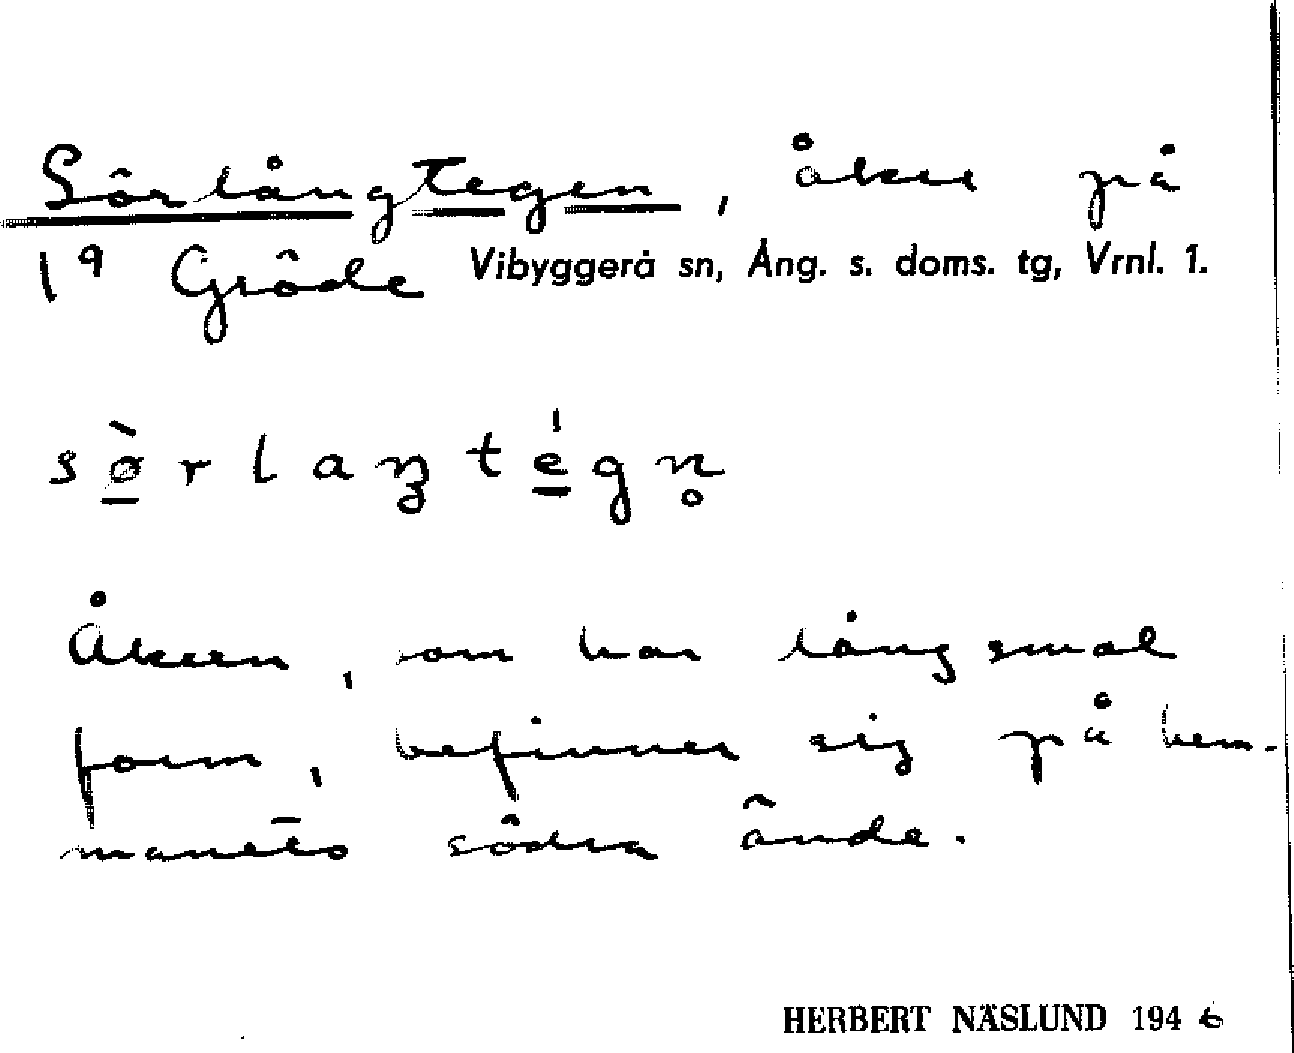 Sörlångtegen, åker på
1⁹ Gröde Vibyggerå sn, Ång. s. doms. tg, Vrnl. 1.
sø̀rlaŋtégn̥
Åkern, som har långsmal
form, befinner sig på hem-
manets södra ände.
HERBERT NÄSLUND 1946